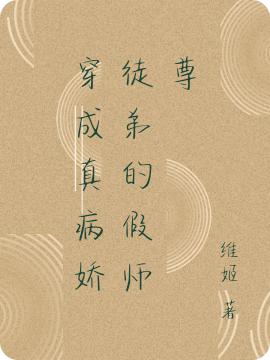 穿成真病娇
徒弟的假师
尊
维姬 著